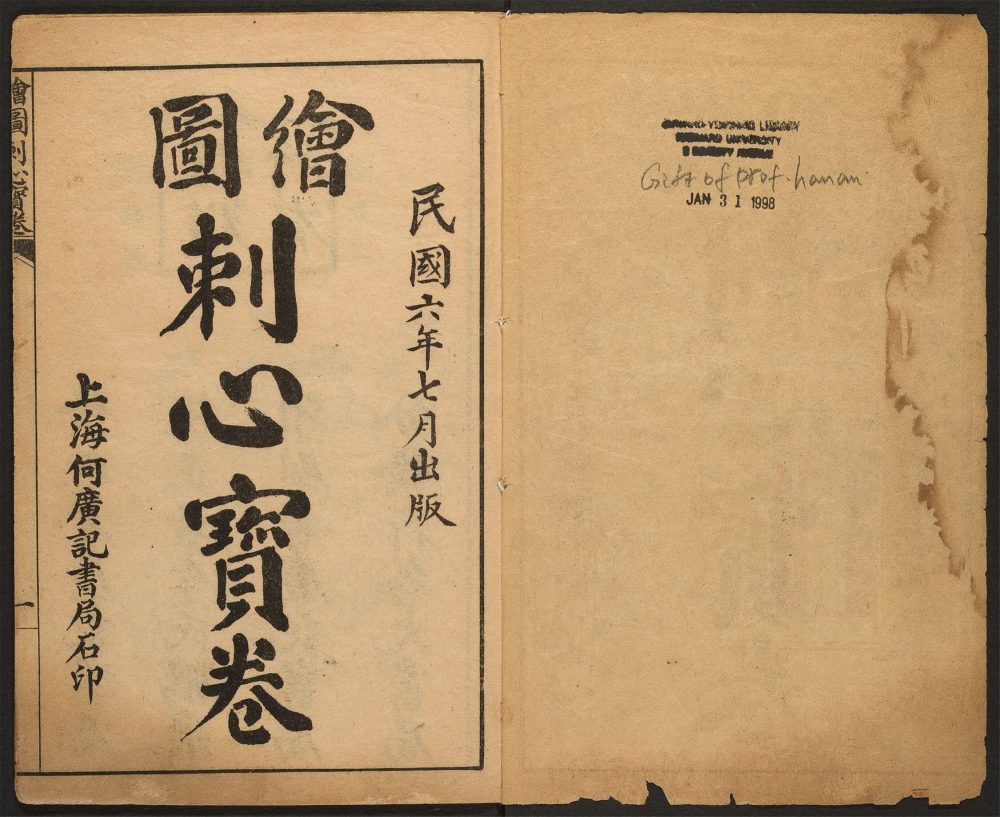 HARVARD-YENCHING LIBRARY
HARVARD UNIVERSITY
2 DIVINITY AVENUE
Gift of prof. hanan
JAN 31 1998
民國六年七月出版
繪圖
刺心寶卷
上海何廣記書局石印
繪圖刺心寶卷
一